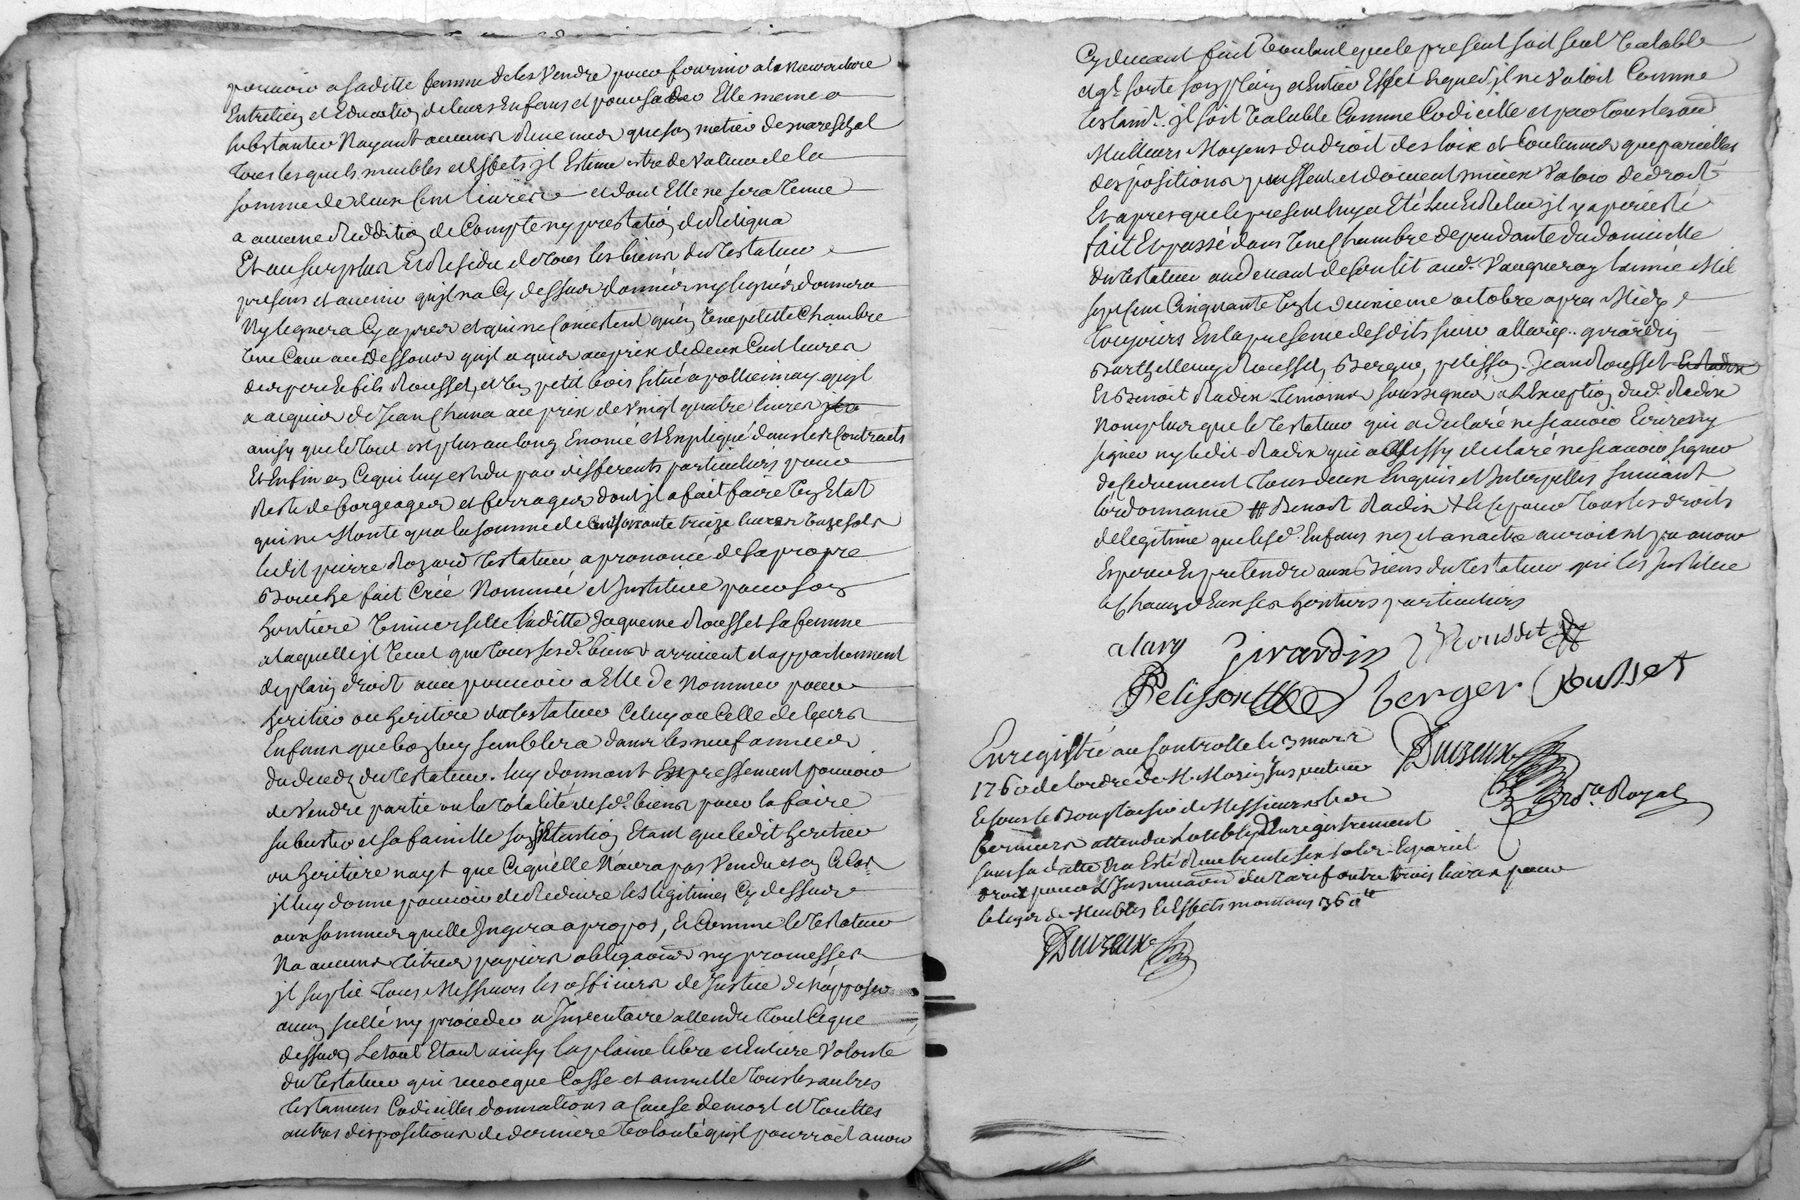 pouvoir a saditte femme de les vendre pour fournir a la nourriture
Entretien et Education de leurs Enfans et pour sader Elle meme a
substanter Nayant aucuns dune mes que son metier de mareschal
Tous lesquels meubles et Effets jl Estime estre de valeur de la
somme de deux Cent livres et dont Elle ne sera Tenue
a aucune Reddition de Compte ny prestation de Reliqua
Et au surplus Et Residu de Tous les biens du Testateur
presens et avenir quil na Cy dessus donnés ny legués donnera
Ny leguera Cy apres et qui ne Consistent qu'en Une petitte Chambre
Une Cave au Dessous quil a quis au prix de deux Cent livres
des pere Et fils Rousset, et Un petit bois situé a pollionnay quil
a acquis de Jean Chana au prix de vingt quatre livres
ainsy que le Tout est plus au long Enoncé et Expliqué dans lesd. Contracts
Et Enfin en Ce qui luy est du par differents particuliers pour
Reste de forgeages et ferrages dont jl a fait faire Un Etat
qui ne Monte qua la somme de Cent soixante treize livres Treze sols
ledit pierre Rozard Testateur a prononcé de sa propre
Bouche fait Créé Nommée et Jnstituée pour son
heritiere Universelle laditte Jaqueme Rousset sa femme
a laquelle jl Veut que Tous sesd. biens arrivent et appartiennent
de plain droit avec pouvoir a Elle de Nommer pour
heritier ou heritiere du Testateur Celuy ou Celle de leurs
Enfans que bon luy semblera dans les neuf années
du deces du Testateur. luy donnant Expressement pouvoir
de Vendre partie ou la Totalité desd. biens pour la faire
subsister et sa famille son jntention Etant que ledit heritier
ou heritiere nayt que Ce quelle N'aura pas Vendu et en Ce Cas
jl luy donne pouvoir de Reduire les legitimes Cy dessus
aux sommes quelle Jugera a propos, Et Comme le Testateur
Na aucuns titres papiers obligations ny promesses
jl suplie Tous Messieurs les officiers de Justice de N'apposer
aucun scellé ny proceder a Jnventaire attendu Tout Ce que
dessus, Le tout Etant ainsy la plaine libre et Entiere Volonté
du Testateur qui revocque Casse et annulle Tous les autres
testamens Codicilles donnations a Cause de mort et Touttes
autres dispositions de derniere Volonté quil pourroit avoir
Cy devant fait Voulant que le present soit seul Valable
et qu'il sorte son plain et Entier Effet Et que s'jl ne Valoit Comme
testamt. jl soit Valable Comme Codicille et par Tous les aud
Meilleurs Moyens du droit des loix et Coutumes que pareilles
dispositions puissent et doivent mieux Valoir de droit
Et apres que le present luy a Eté Lu Et Relu jl y a persisté
fait Et passé dans Une Chambre dependante du domicille
du Testateur au devant de son lit aud. Vaugneray l'année Mil
sept Cent Cinquante Six le deuxieme octobre apres Midy
Toujours En la presence desdits sieurs allary, girardin
Barthellemy Rousset, Berger, pelisson, Jean Rousset
Et Benoit Radix Temoins soussignés a L'Exception dud. Radix
Nomplus que le Testateur qui a declaré ne scavoir Ecrire ny
signer ny ledit Radix qui a aussy declaré ne scavoir signer
de serment Tous deux Enquis et Jnterpellés suivant
lordonnance # Benoit Radix + le Ce pour Tous les droits
de legitime que lesd. Enfans nez et a naitre auroient pu avoir
Esperer Et pretendre aux Biens du Testateur qui les Jnstitue
a Chacun d'Eux ses heritiers particuliers
alary Girardin Rousset
Pelisson berger Rousset
Enregistré au Controlle le 3 mars
1760 de lordre de M. Morin Jnspecteur
Duizeux
Et sous le Bon plaisir de Messieurs les
nore. Royal
fermiers attendu Loubly D'Enregistrement
sous sa datte Ora Esté Receu trente six sols pareil
droit pour L'Jnsinuation du Tarif outre trois livres pour
le legs de Meubles Et Effets montans 360 ᵗᵗ
Duizeux